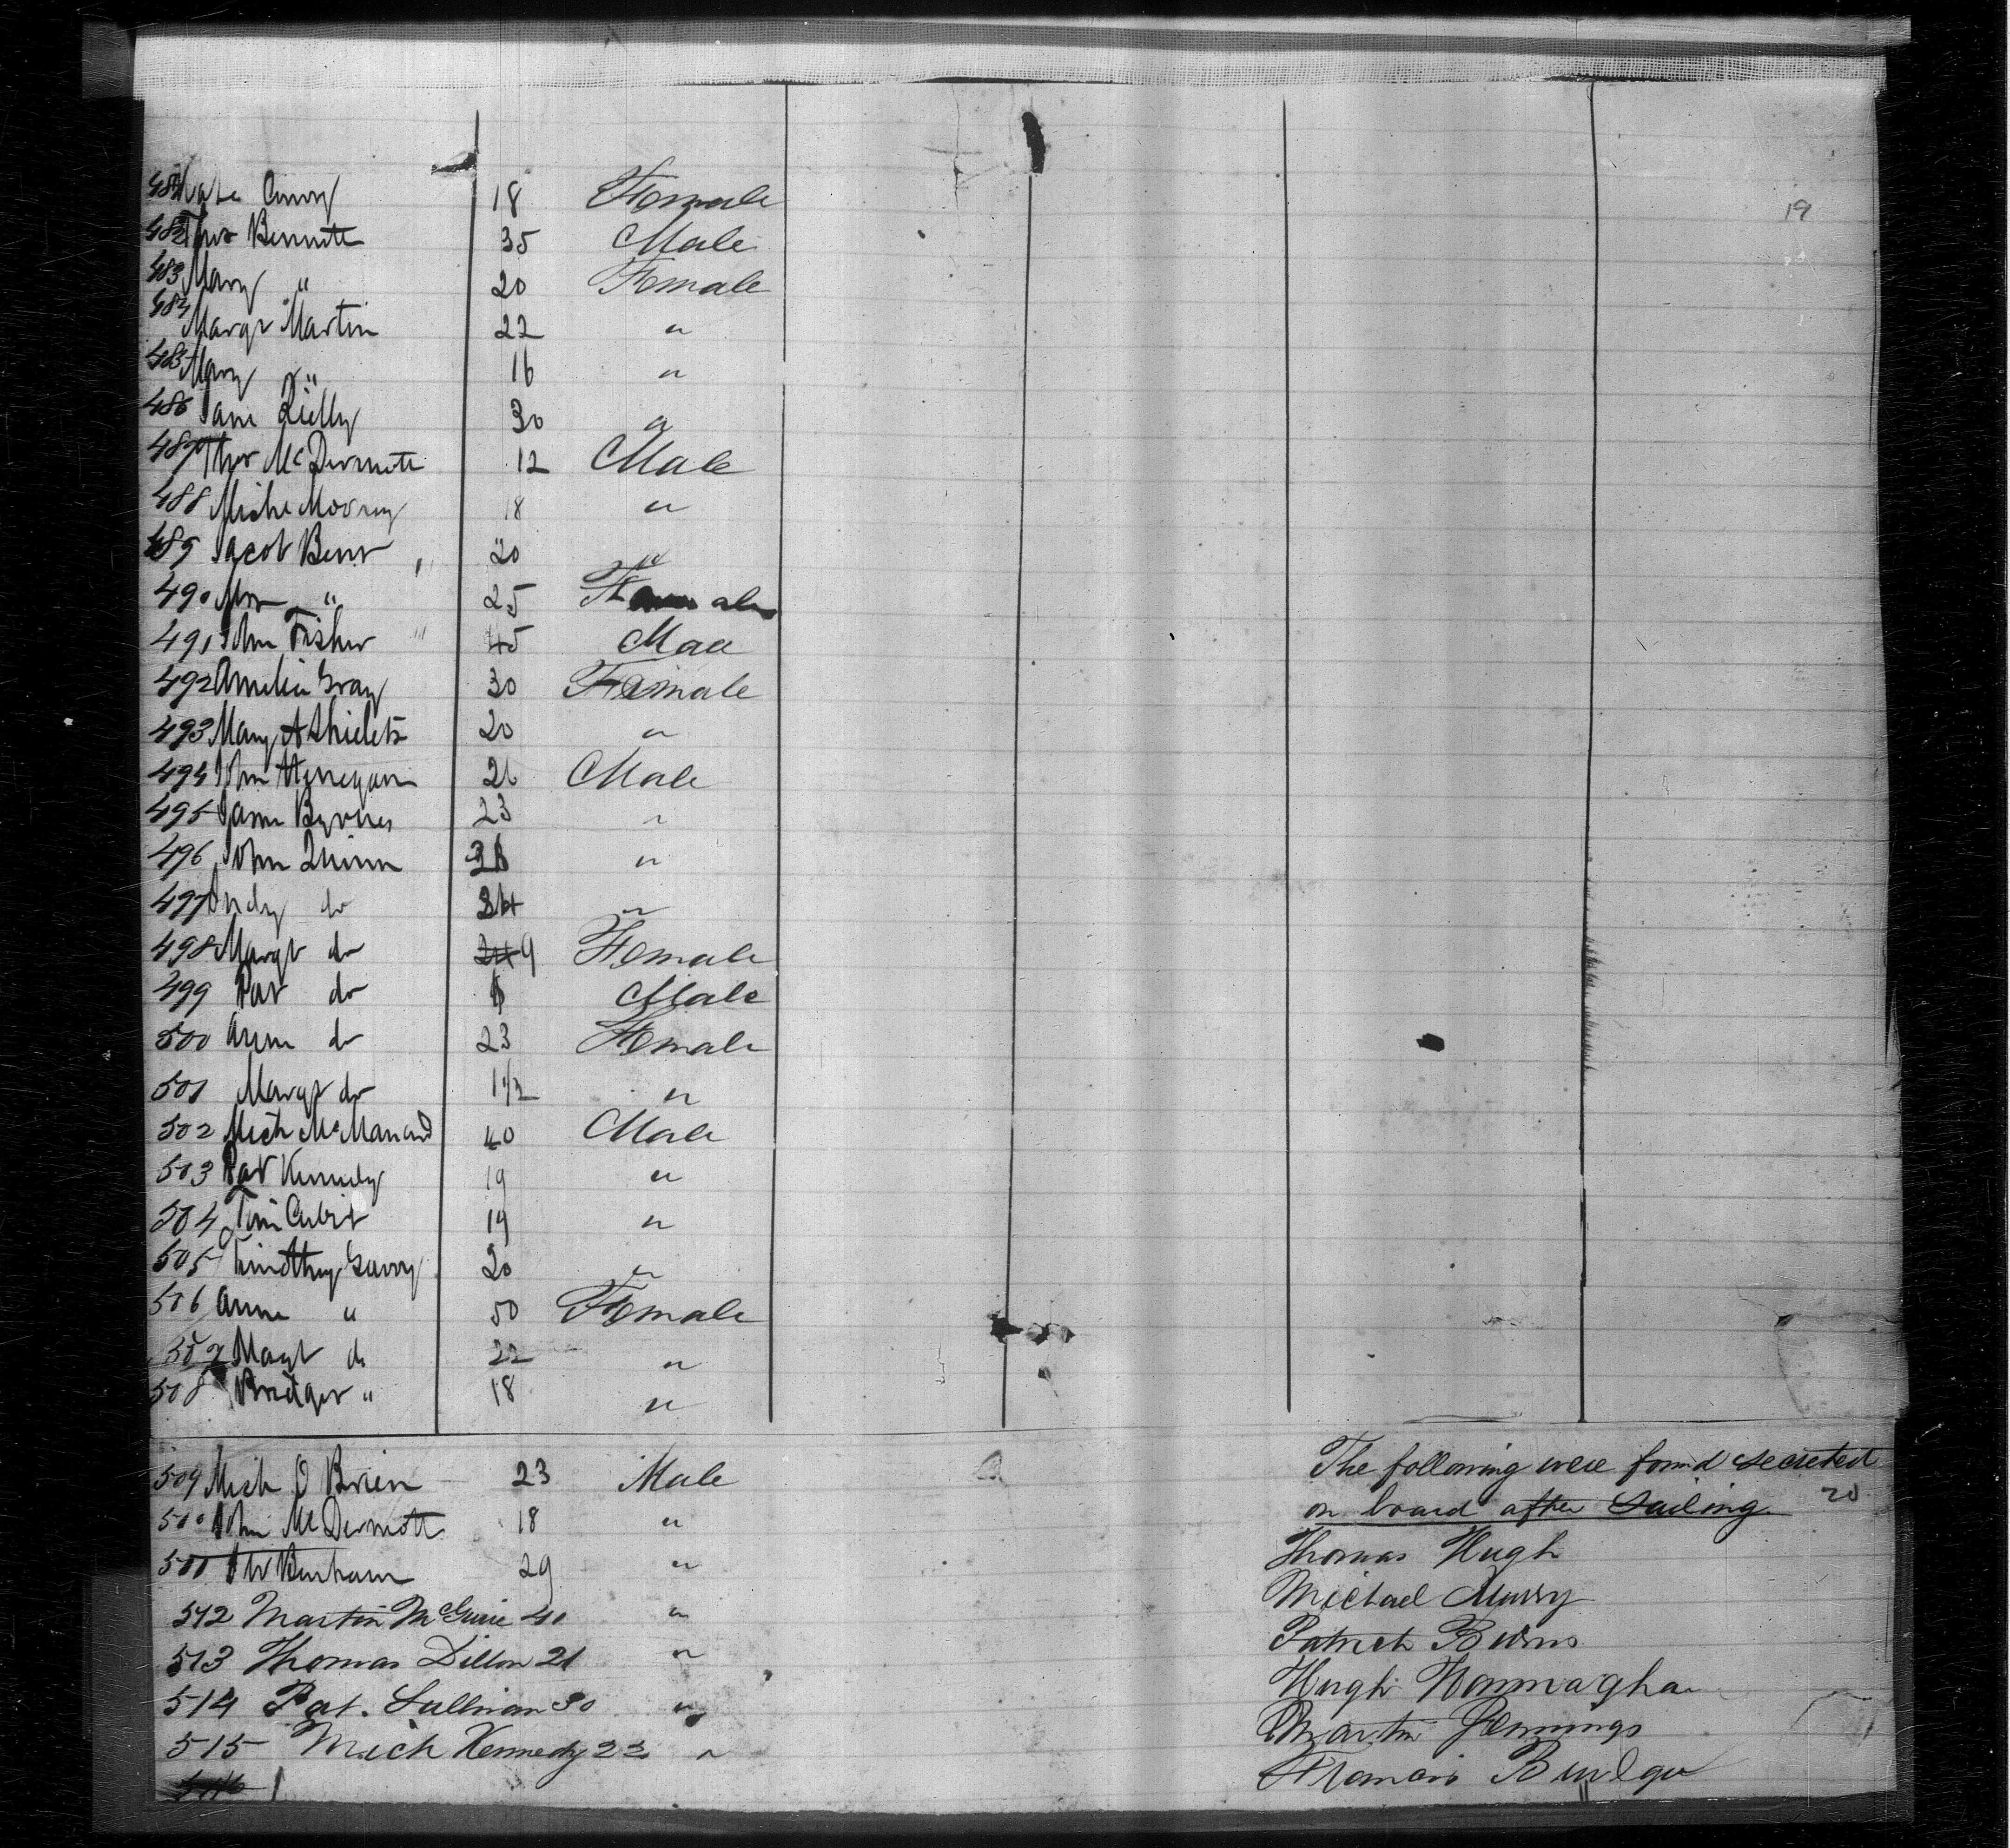 19
481 Kate Conroy 18 Female
482 Thos Bennett 35 Male
483 Mary " 20 Female
484 Margt Martin 22 "
485 Mary " 16 "
486 Jane 30 "
487 Thos McDermott 12 Male
488 Miche 18 "
489 Jacob 20 "
490 Mrs " 25 Female
491 John Fisher 45 Male
492 Amelia Gray 30 Female
493 Mary A Shields 20 "
494 John 26 Male
495 Jame Byrnes 23 "
496 John Quinn "
497 Andy do "
498 Margt do 9 Female
499 Pat do Male
500 Anne do 23 Female
501 Margt do 1 1/2 "
502 Mich 40 Male
503 Pat Kennedy 19 "
504 Tim 19 "
505 Timothy Garry 20 "
506 Anne " 50 Female
507 Margt do 22 "
508 Bridget " 18 "
509 Mich O Brien 23 Male
510 John McDermott 18 "
29 "
512 Martin McGuire 40 "
513 Thomas Dillon 21 "
514 Pat. Sullivan 30 "
515 Mich Kennedy 23 "
The following were found secreted
on board after Sailing. 20
Thomas Hugh
Michael
Patrick Burns
Hugh
Martin Jennings
Francis